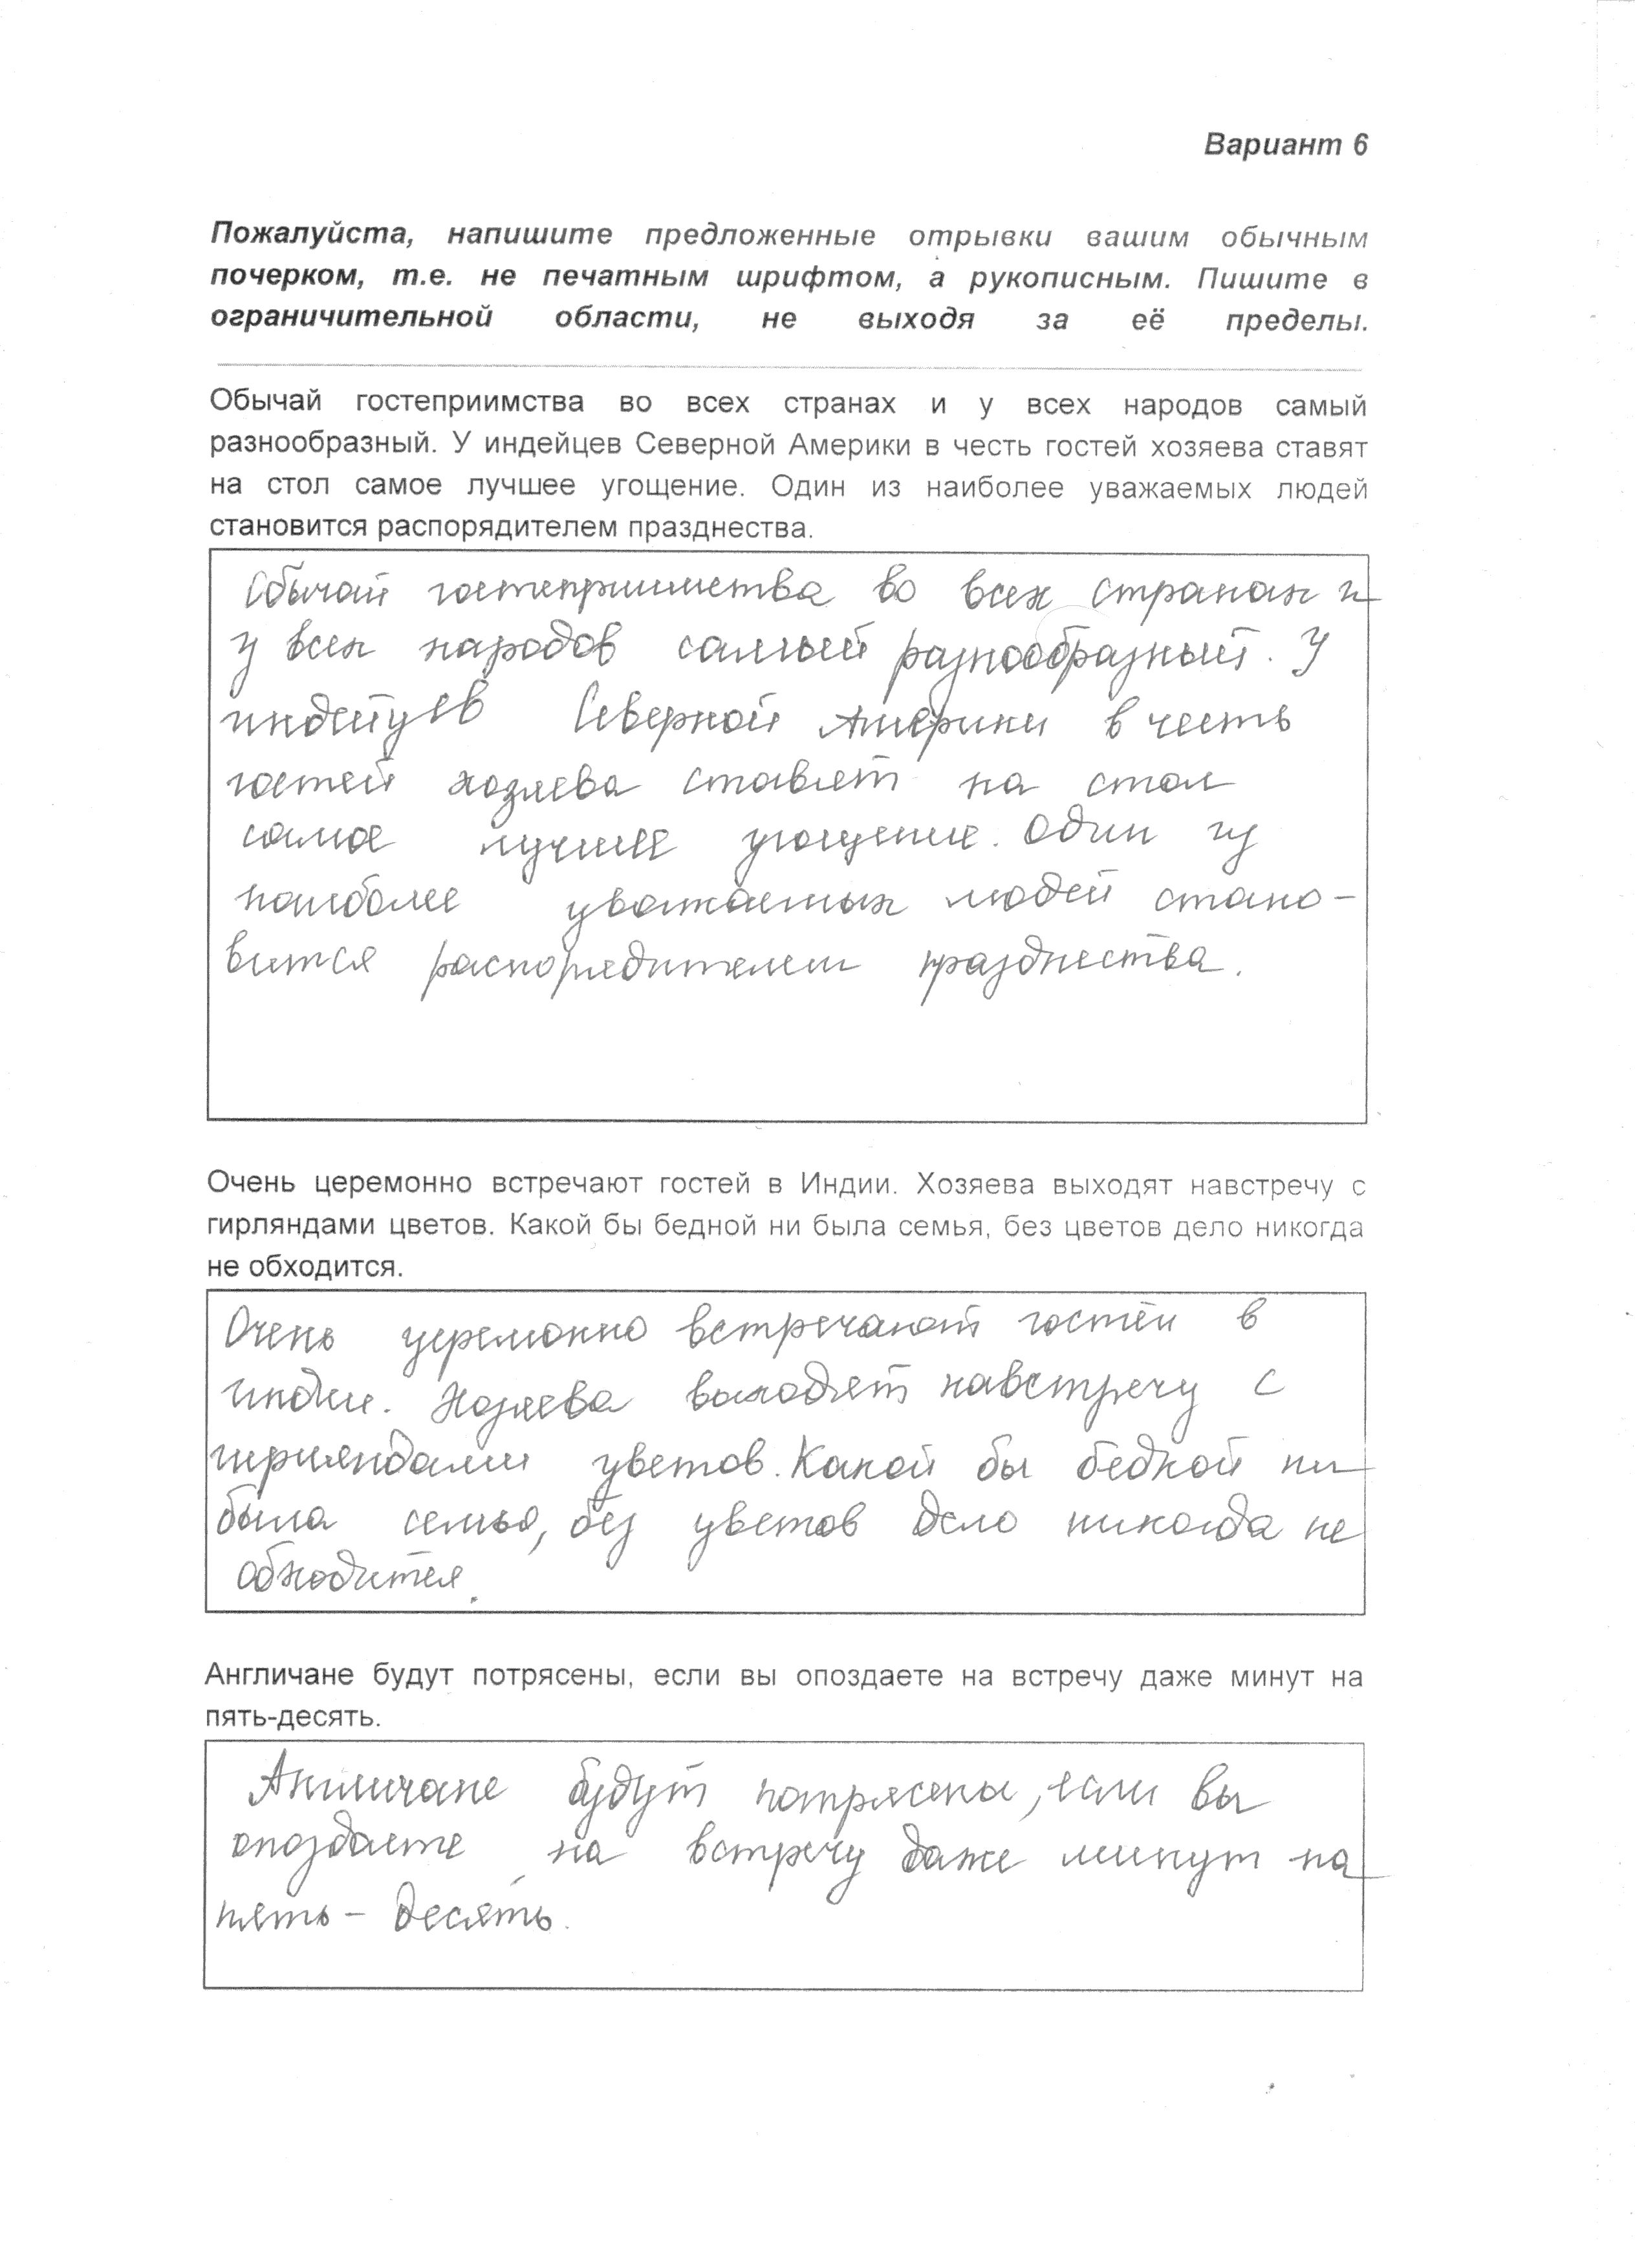 Вариант 6
Пожалуйста, напишите предложенные отрывки вашим обычным
почерком, т.е. не печатным шрифтом, а рукописным. Пишите в
ограничительной области, не выходя за её пределы.
Обычай гостеприимства во всех странах и у всех народов самый
разнообразный. У индейцев Северной Америки в честь гостей хозяева ставят
на стол самое лучшее угощение. Один из наиболее уважаемых людей
становится распорядителем празднества.
Обычай гостеприимства во всех странах и
у всех народов самый разнообразный. У
индейцев Северной Америки в честь
гостей хозяева ставят на стол
самое лучшее угощение. Один из
наиболее уважаемых людей стано-
вится распорядителем празднества.
Очень церемонно встречают гостей в Индии. Хозяева выходят навстречу с
гирляндами цветов. Какой бы бедной ни была семья, без цветов дело никогда
не обходится.
Очень церемонно встречают гостей в
Индии. Хозяева выходят навстречу с
гирляндами цветов. Какой бы бедной ни
была семья, без цветов дело никогда не
обходится.
Англичане будут потрясены, если вы опоздаете на встречу даже минут на
пять-десять.
Англичане будут потрясены, если вы
опоздаете на встречу даже минут на
пять - десять.